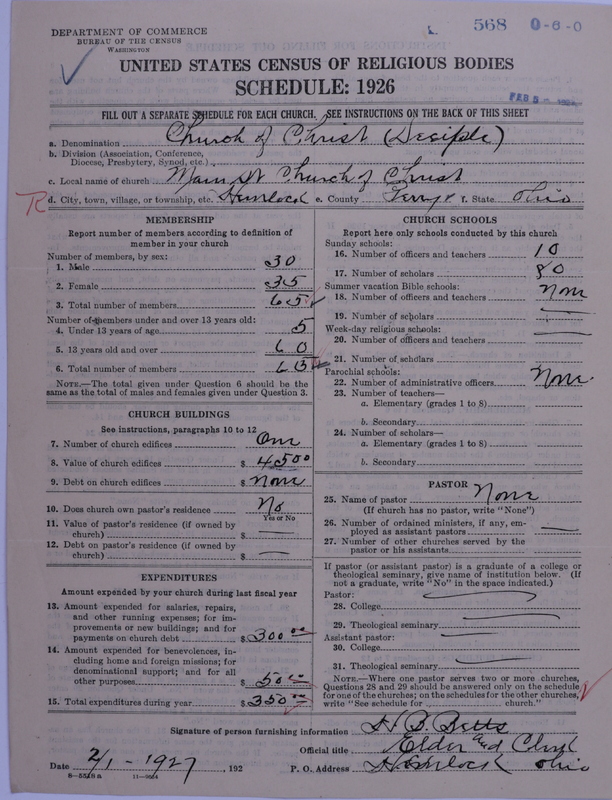 568 0-6-0
DEPARTMENT OF COMMERCE
BUREAU OF THE CENSUS
WASHINGTON
UNITED STATES CENSUS OF RELIGIOUS BODIES
SCHEDULE: 1926
FEB 5
FILL OUT A SEPARATE SCHEDULE FOR EACH CHURCH. SEE INSTRUCTIONS ON THE BACK OF THIS SHEET
a. Denomination Church of Christ (Disciple)
b. Division (Association, Conference, Diocese, Presbytery, Synod, etc.)
c. Local name of church Main St Church of Christ
d. City, town, village, or township, etc. Hemlock e. County Perry f. State Ohio
MEMBERSHIP
Report number of members according to definition of
member in your church
Number of members, by sex:
1. Male 30
2. Female 35
3. Total number of members 65
Number of members under and over 13 years old:
4. Under 13 years of age 5
5. 13 years old and over 60
6. Total number of members 65
NOTE.—The total given under Question 6 should be the
same as the total of males and females given under Question 3.
CHURCH BUILDINGS
See instructions, paragraphs 10 to 12
7. Number of church edifices One
8. Value of church edifices $ 4500
9. Debt on church edifices $ None
10. Does church own pastor's residence No
Yes or No
11. Value of pastor's residence (if owned by
church) $
12. Debt on pastor's residence (if owned by
church) $
EXPENDITURES
Amount expended by your church during last fiscal year
13. Amount expended for salaries, repairs,
and other running expenses; for im-
provements or new buildings; and for
payments on church debt $ 300 00
14. Amount expended for benevolences, in-
cluding home and foreign missions; for
denominational support; and for all
other purposes $ 50 00
15. Total expenditures during year $ 350 00
CHURCH SCHOOLS
Report here only schools conducted by this church
Sunday schools:
16. Number of officers and teachers 10
17. Number of scholars 80
Summer vacation Bible schools:
18. Number of officers and teachers None
19. Number of scholars
Week-day religious schools:
20. Number of officers and teachers
21. Number of scholars
Parochial schools:
22. Number of administrative officers None
23. Number of teachers—
a. Elementary (grades 1 to 8)
b. Secondary
24. Number of scholars—
a. Elementary (grades 1 to 8)
b. Secondary
PASTOR
25. Name of pastor None
(If church has no pastor, write "None")
26. Number of ordained ministers, if any, em-
ployed as assistant pastors
27. Number of other churches served by the
pastor or his assistants
If pastor (or assistant pastor) is a graduate of a college or
theological seminary, give name of institution below. (If
not a graduate, write "No" in the space indicated.)
Pastor:
28. College
29. Theological seminary
Assistant pastor:
30. College
31. Theological seminary
NOTE.—Where one pastor serves two or more churches,
Questions 28 and 29 should be answered only on the schedule
for one of the churches; on the schedules for the other churches,
write "See schedule for church."
Signature of person furnishing information H B Betts
Official title Elder and Clerk
Date 2/1-1927, 192 P. O. Address Hemlock Ohio
8-5518a 11-9084